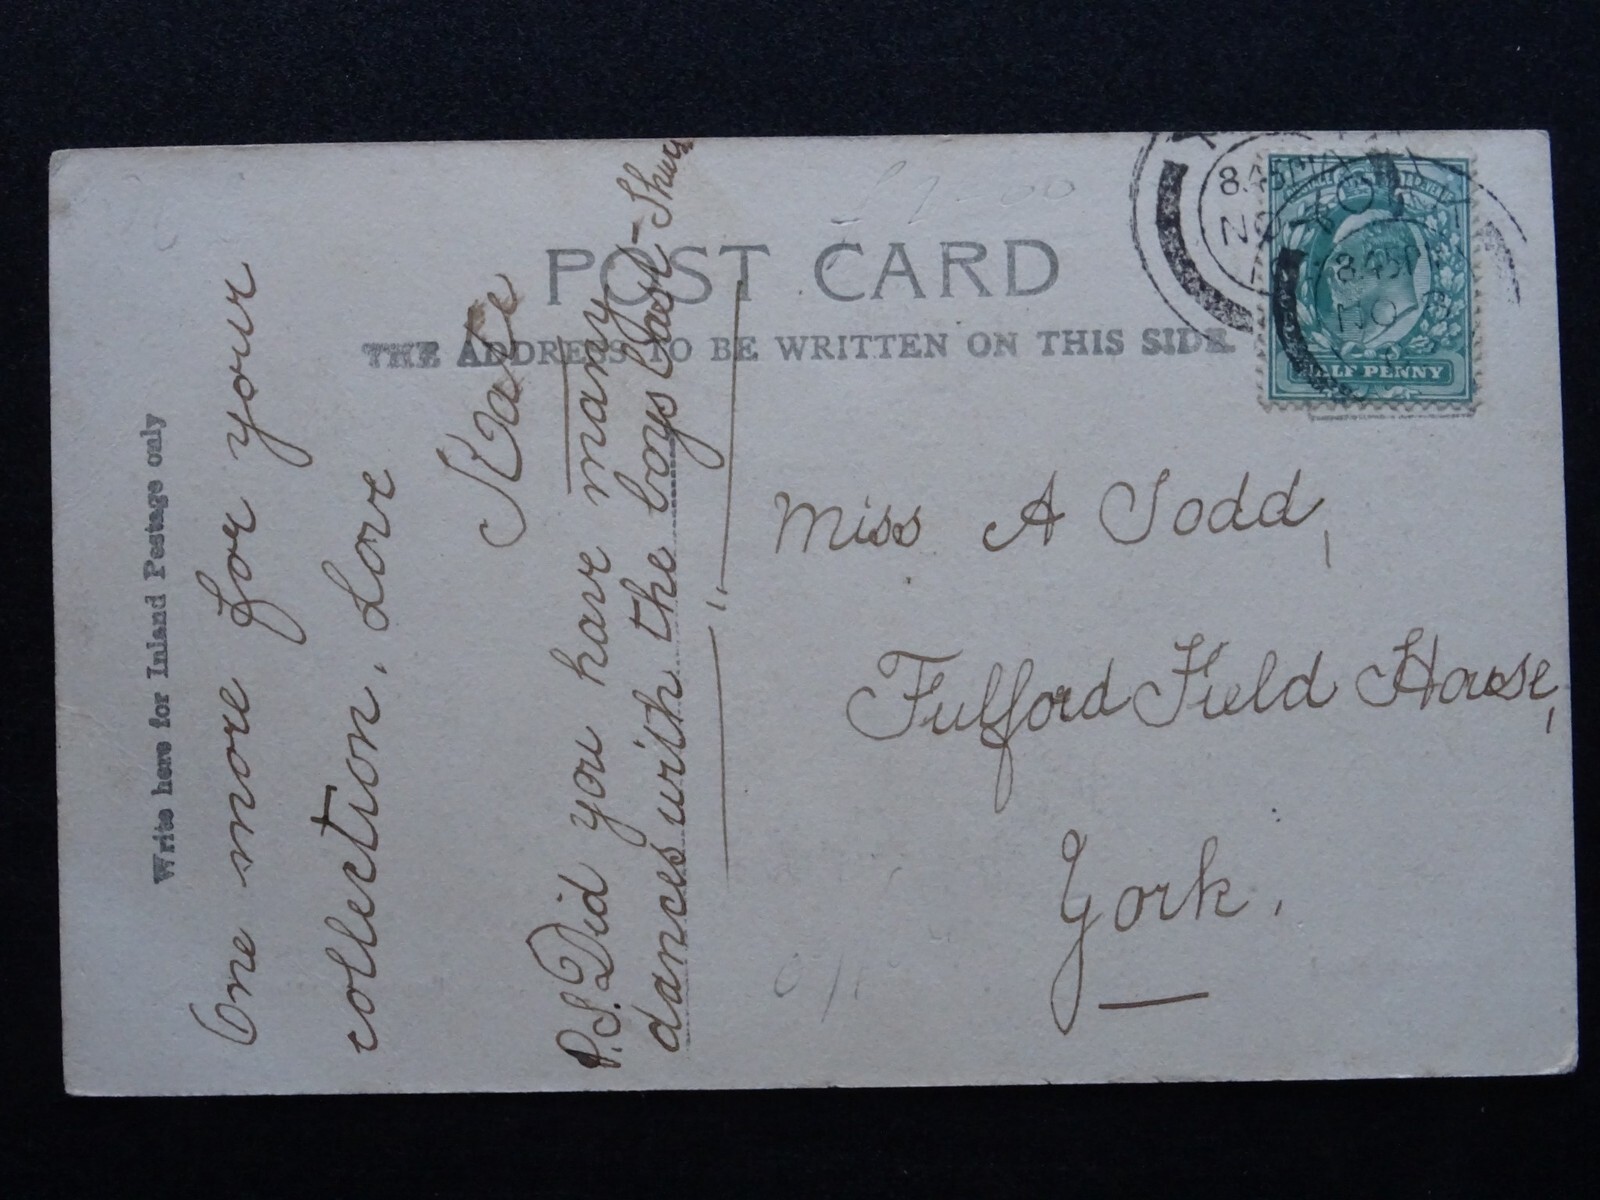 POST CARD
THE ADDRESS TO BE WRITTEN ON THIS SIDE.
Write here for Inland Postage only
One more for your
collection. Love
Kate
P.S. Did you have many
dances with the boys last - Thurs
Miss A Todd,
Fulford Field House,
York.
8.45PM
NO
8.45P
NO
HALF PENNY